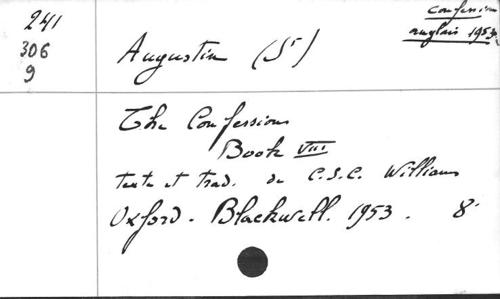 241
306
9
Confession
anglais 1953.
Augustin (St)
The Confessions
Book VIII
texte et trad. de C.S.C. Williams
Oxford. Blackwell. 1953. 8°